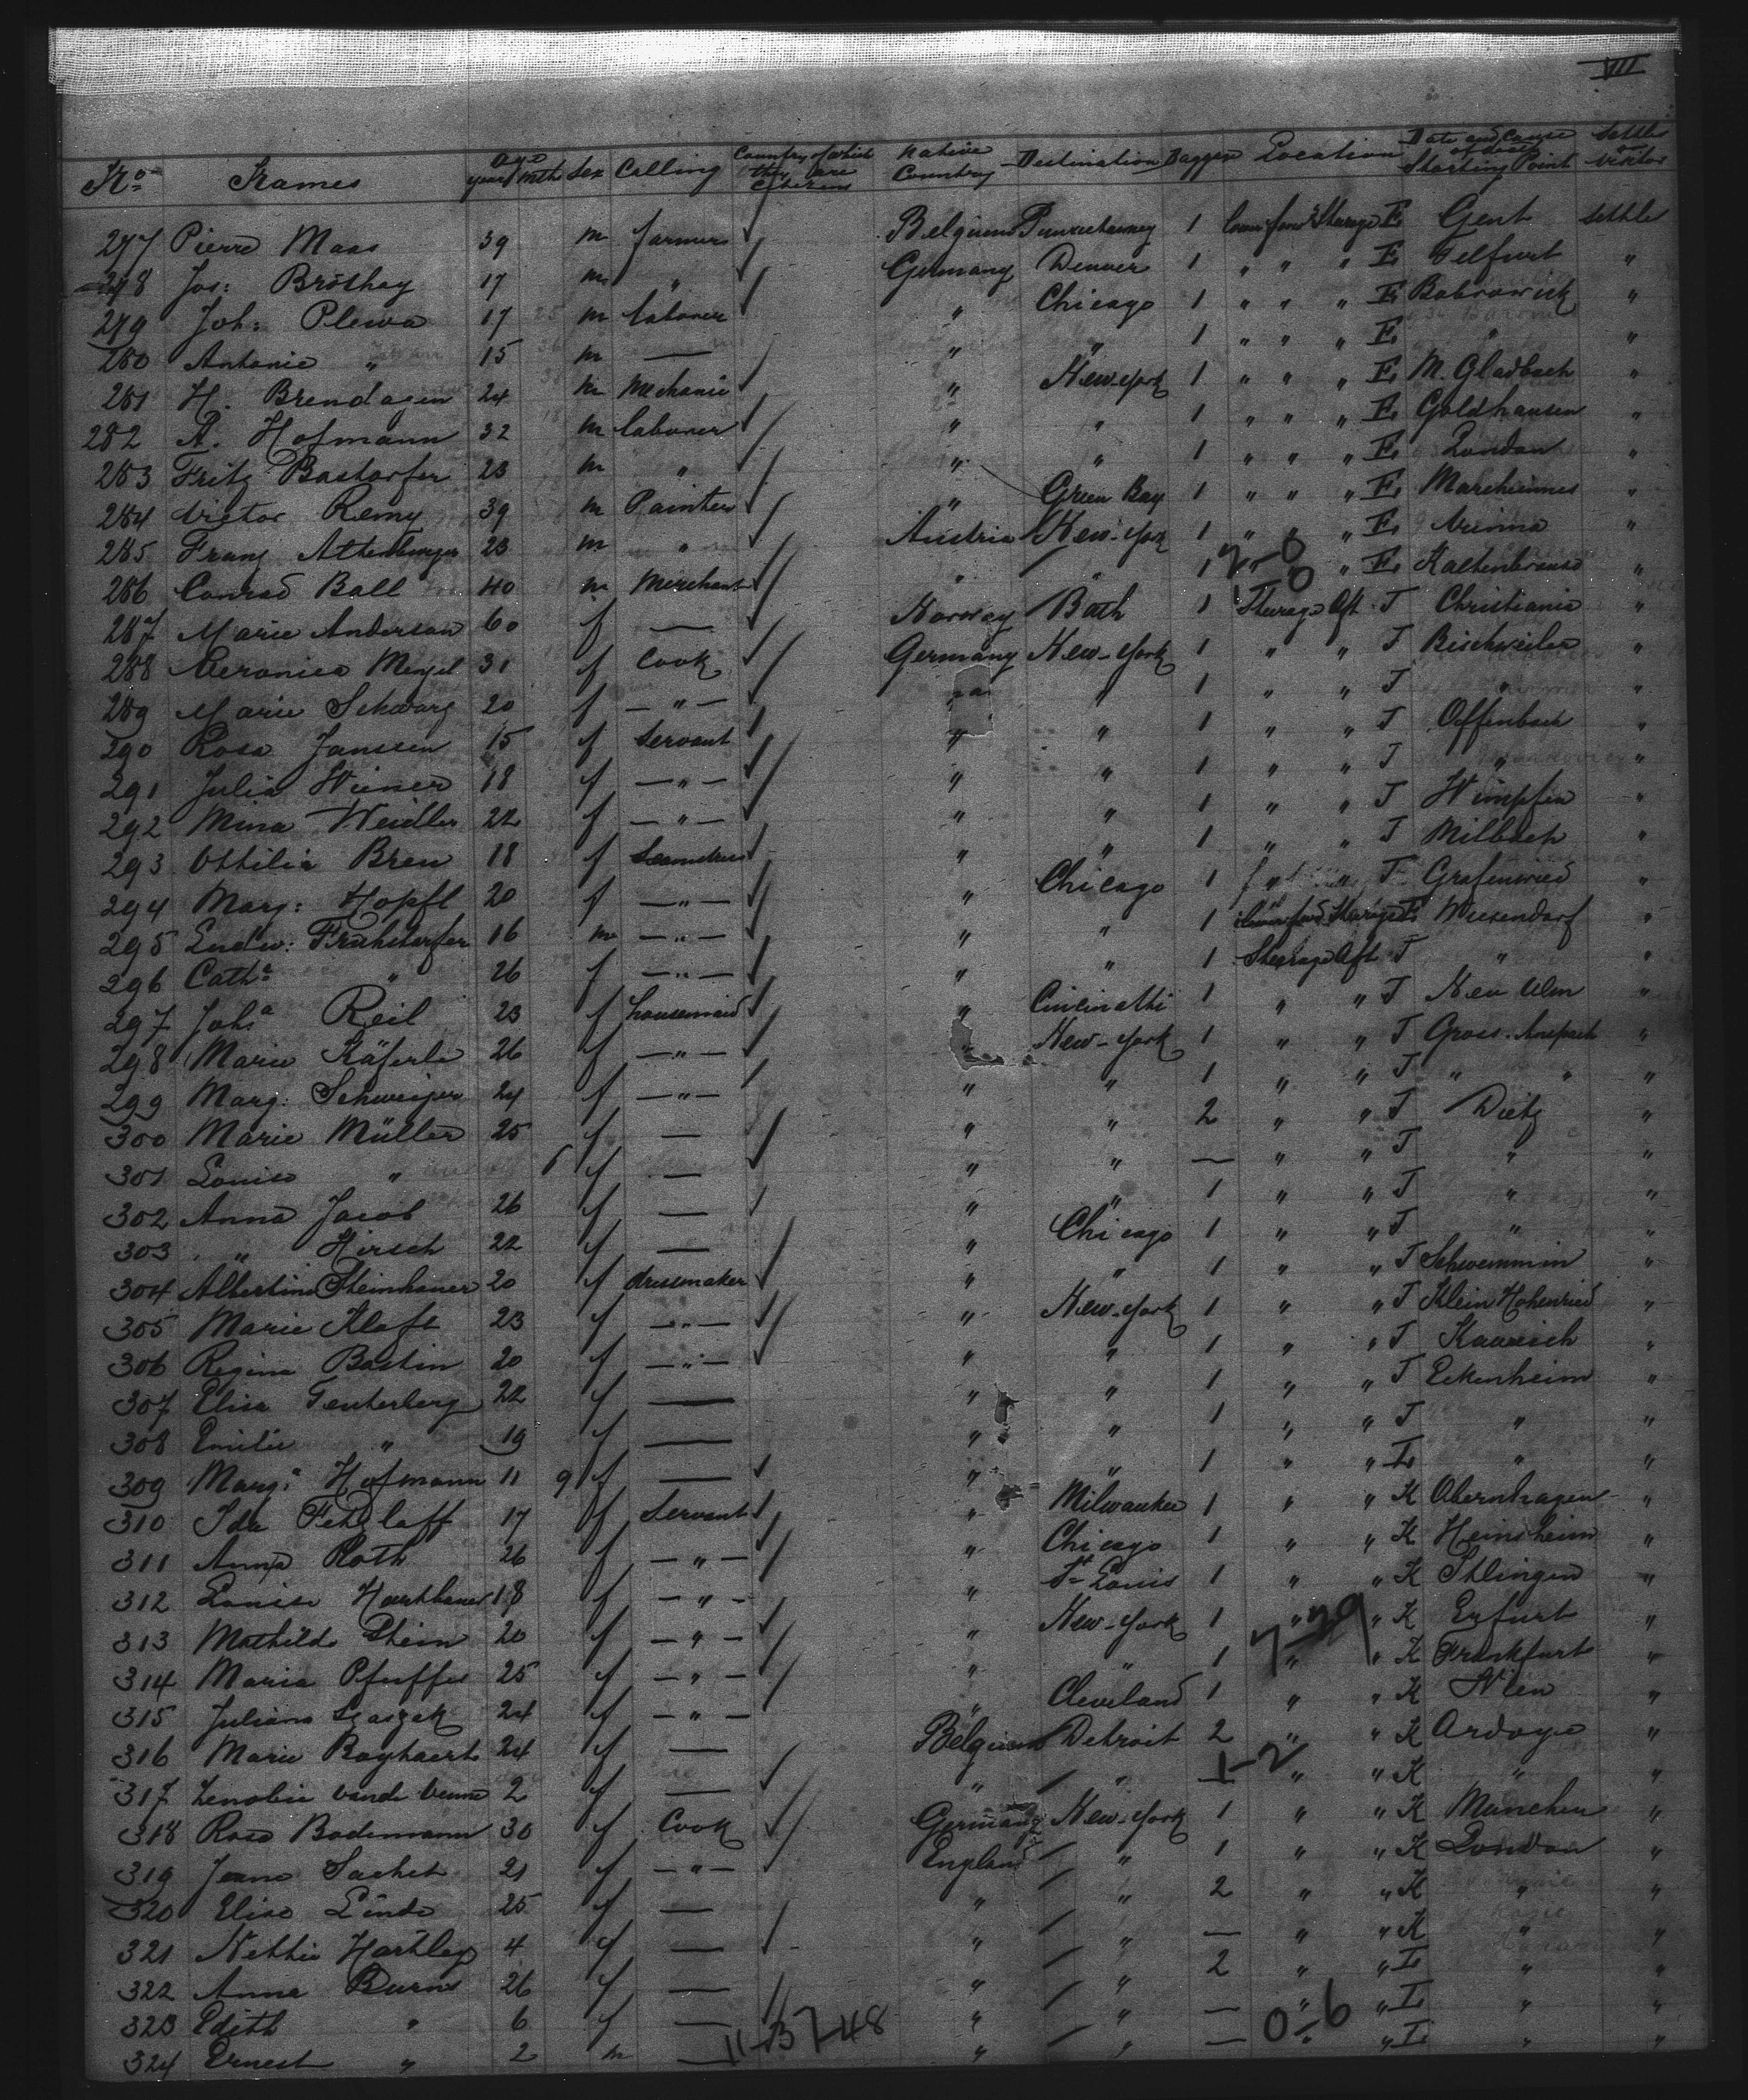 VII
No Names Age years mth Sex Calling Country of which they are Citizens Native Country Destination Baggage Location Date and Cause of death Starting Point Settler or Visitor
277 Pierre Maas 39 m farmer Belgium 1 Steerage E Gent settler
278 Jos: 17 m " Germany Denver 1 " " " E "
279 Joh: Plewa 17 m laborer " Chicago 1 " " " E "
280 Antonie " 15 m — " " 1 " " " E " "
281 H. Brendagen 24 m Mechanic " New-York 1 " " " E M. Gladbach "
282 A. Hofmann 32 m laborer " " 1 " " " E Goldhausen "
283 Fritz Bastorfer 23 m " " " 1 " " " E London "
284 Victor Remy 39 m Painter " Green Bay 1 " " " E "
285 Franz Attenberger 23 m " Austria New-York 1 " " " E Vienna "
286 Conrad Ball 40 m Merchant " " 1 " " " E "
2-0
0
287 Marie Anderson 60 f — Norway Bath 1 Steerage Aft J Christiania "
288 Veronica 31 f Cook Germany New-York 1 " " J Bischweiler "
289 Marie Schwarz 20 f — " — " " 1 " " J " "
290 Rosa Janssen 15 f Servant " " 1 " " J Offenbach "
291 Julia Wiener 18 f — " — " " 1 " " J " "
292 Mina Weidler 22 f — " — " " 1 " " J Wimpfen "
293 Ottilia Breu 18 f Seamstress " " 1 " " J Milbach "
294 Marg: Hopfl 20 f — " — " Chicago 1 " " J Grafenried "
295 Ludw: Fruhstorfer 16 m — " — " " 1 Steerage E Wiesendorf "
296 Cath.a " 26 f — " — " " 1 Steerage Aft J " "
297 Joh.a Reil 23 f housemaid " Cincinatti 1 " " J Neu Ulm "
298 Marie Käferle 26 f — " — " New-York 1 " " J Gross-Anspach "
299 Marg: Schweizer 24 f — " — " " 1 " " J " " "
300 Marie Müller 25 f — " " 2 " " J Dietz "
301 Louise " f — " " — " " J " "
302 Anna Jacob 26 f — " " 1 " " J " "
303 " Hirsch 22 f — " Chicago 1 " " J " "
304 Albertine Steinhauer 20 f dressmaker " " 1 " " J Schwemmin "
305 Marie Klaft 23 f — " — " New-York 1 " " J Klein Hohenried "
306 Regina Bastin 20 f — " — " " 1 " " J "
307 Elisa Tenterberg 22 f — " " 1 " " J Eckenheim "
308 Emilie " 19 f — " " 1 " " J " "
309 Marg.a Hofmann 11 9 f — " " 1 " " L " "
310 Ida Fetzlaff 17 f Servant " Milwaukee 1 " " K Obernhagen "
311 Anna Roth 26 f — " — " Chicago 1 " " K Heinsheim "
312 Louise 18 f — " — " St Louis 1 " " K "
313 Mathilde 20 f — " — " New-York 1 " " K Erfurt "
7-29
314 Maria Pfeiffer 25 f — " — " " 1 " " K Frankfurt "
315 Juliana 24 f — " — " Cleveland 1 " " K "
316 Marie 24 f — Belgium Detroit 2 " " K Ardoye "
1-2
317 Zenobie vande Venne 2 f — " " — " " K " "
318 Rosa Bodemann 30 f Cook Germany New-York 1 " " K München "
319 Jeane Sachet 21 f — " — England " 1 " " K London "
320 Elise Linde 25 f — " " 2 " " K " "
321 Nettie Hartley 4 f — " " — " " K " "
322 Anna Burns 26 f — " " 2 " " L " "
323 Edith " 6 f — " " — " " L " "
324 Ernest " 2 m — " " — " " L " "
11-37-48
0-6